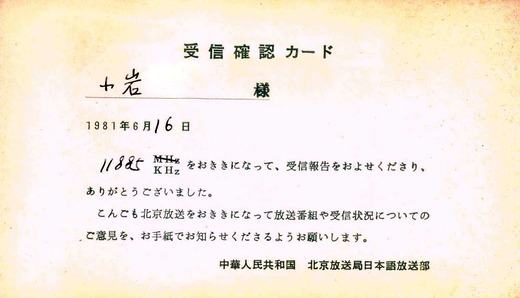 受信確認カード
小岩 様
1981年6月16日
11885 MHz KHz をおききになって、受信報告をおよせくださり、
ありがとうございました。
こんごも北京放送をおききになって放送番組や受信状況についての
ご意見を、お手紙でお知らせくださるようお願いします。
中華人民共和国 北京放送局日本語放送部